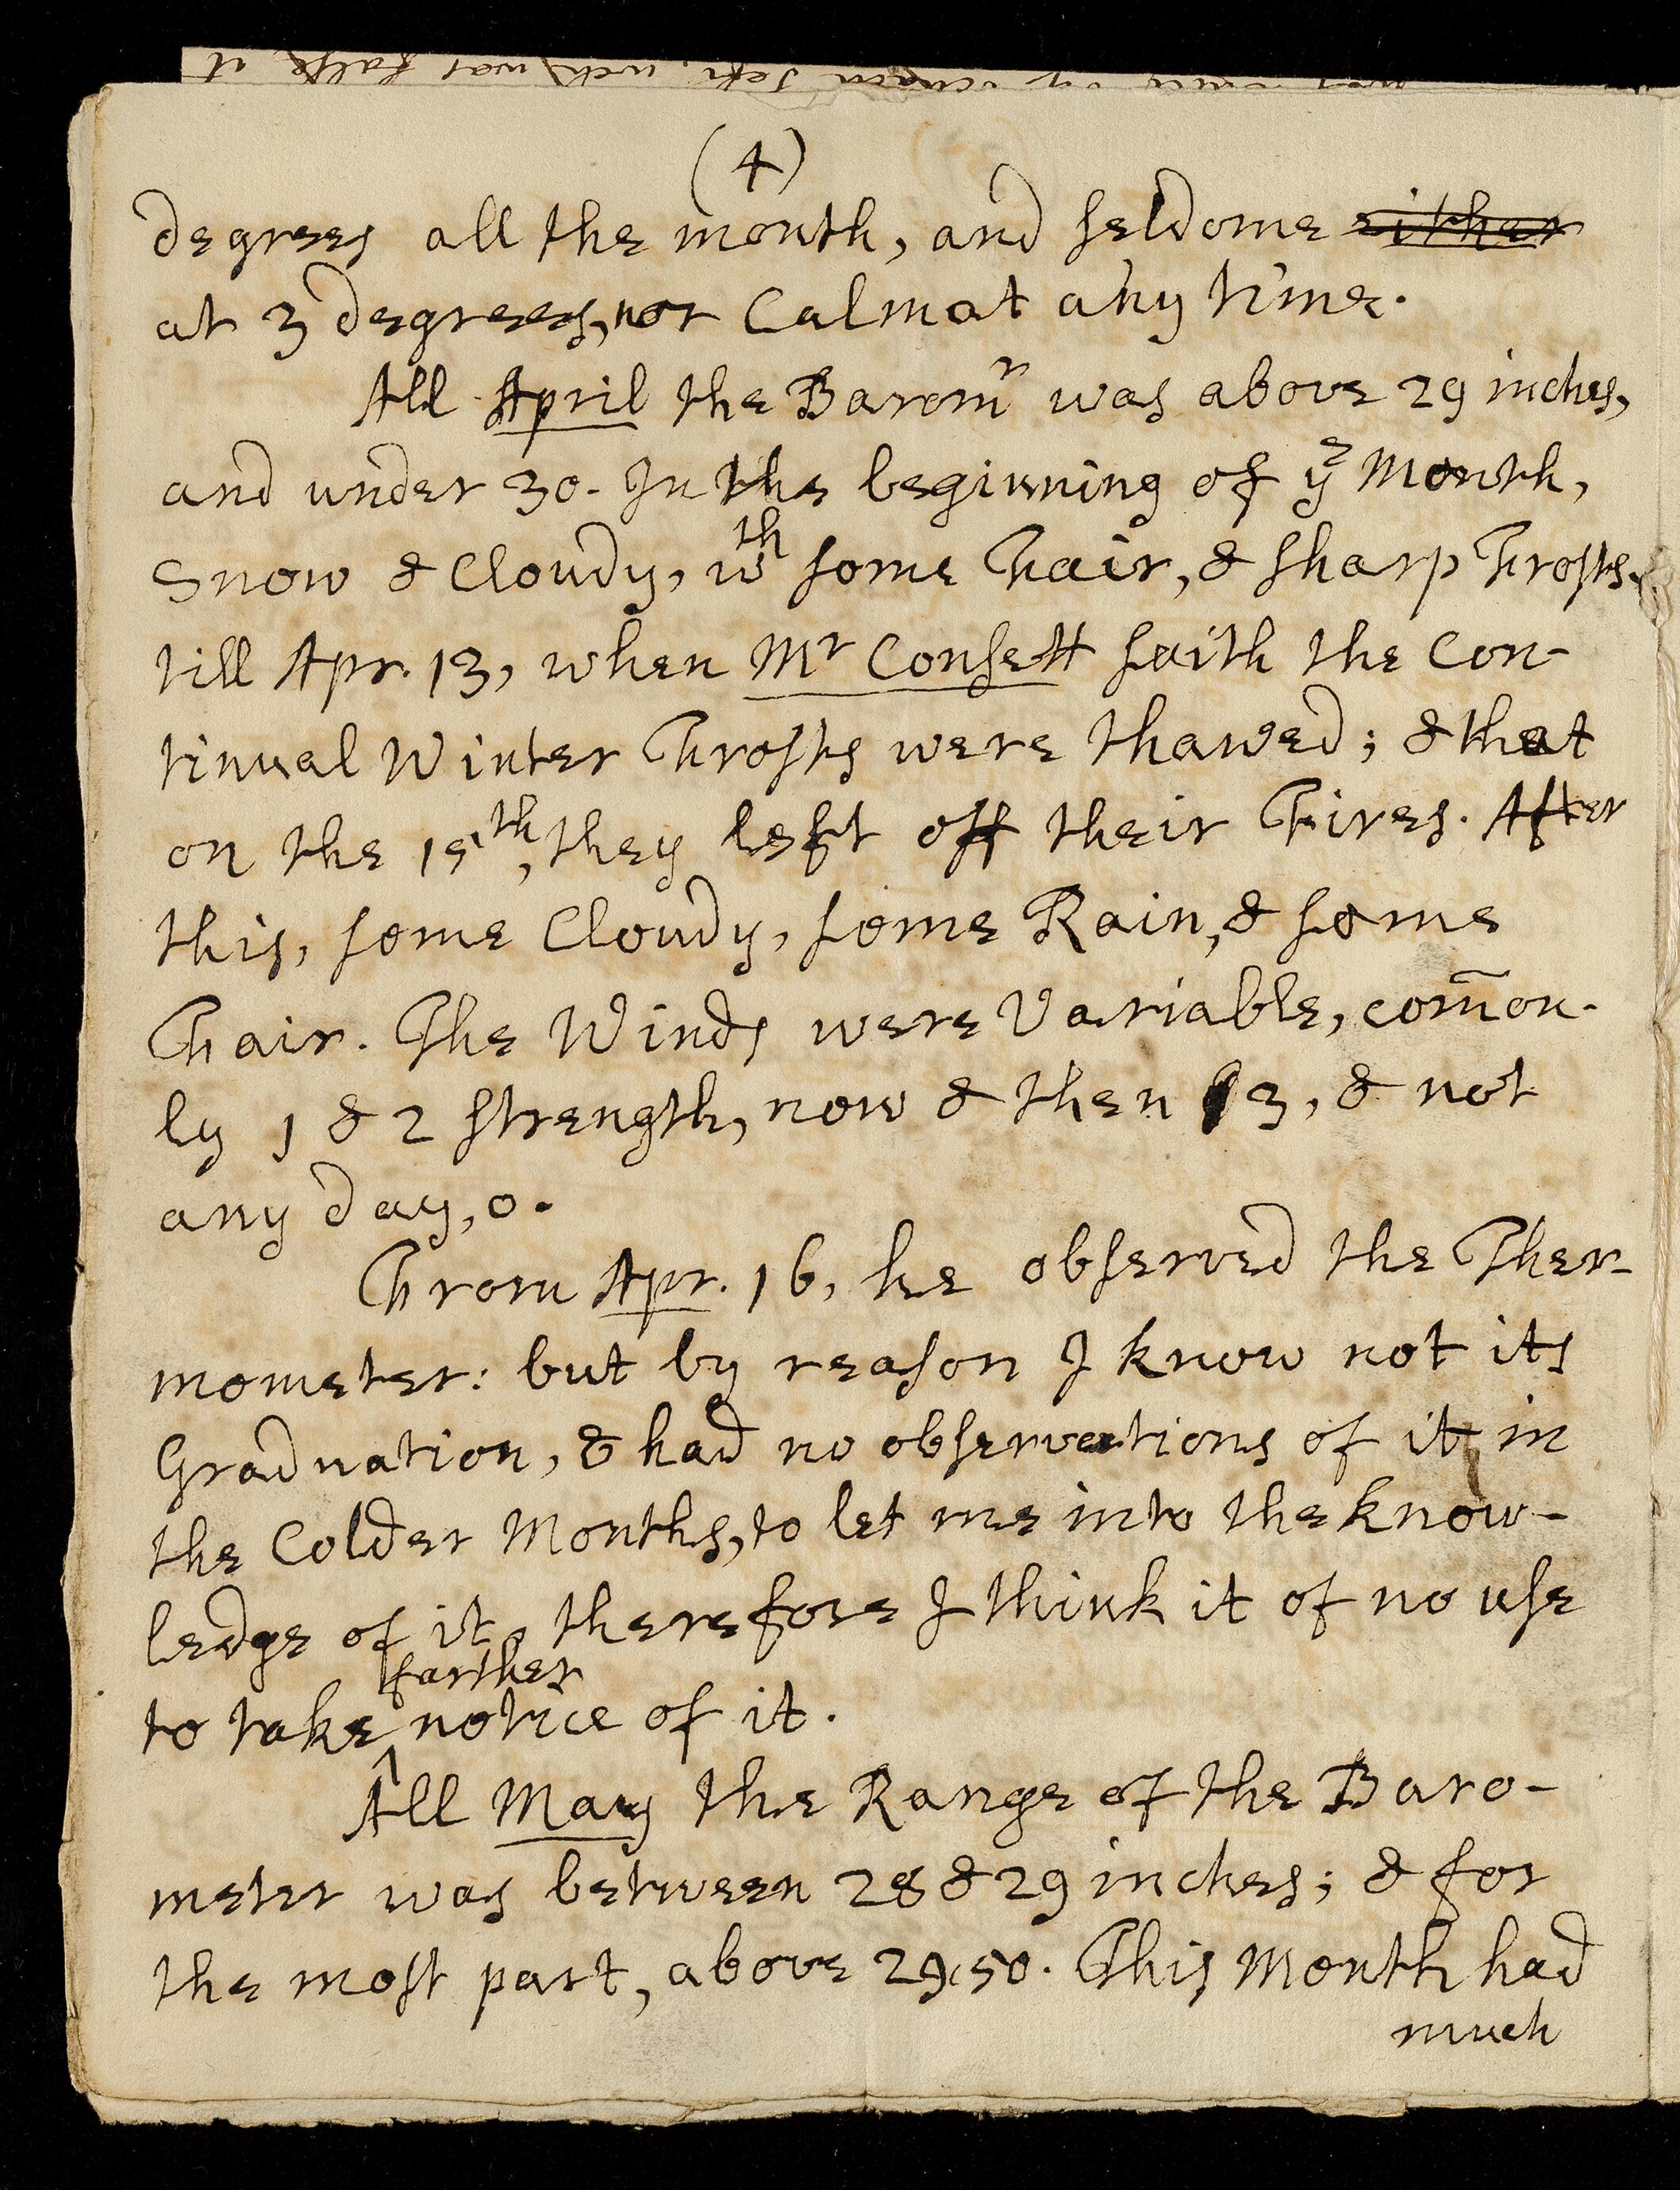 (4)
degrees all the month, and seldome either
at 3 degrees, nor Calm at any time.
All April the Baromr was above 29 inches,
and under 30. In the beginning of ye Month,
Snow & Cloudy, wth some Fair, & sharp Frosts,
till Apr. 13, when Mr Consett saith the Con-
tinual Winter Frosts were thawed; & that
on the 15th, they left off their Fires. After
this, some Cloudy, some Rain, & some
Fair. The Winds were Variable, com̄on-
ly 1 & 2 strength, now & then 3, & not
any day, 0.
From Apr. 16, he observed the Ther-
mometer: but by reason I know not its
Graduation, & had no observations of it in
the Colder Months, to let me into the know-
ledge of it, therefore I think it of no use
farther
to take ^ notice of it.
All May the Range of the Baro-
meter was between 28 & 29 inches; & for
the most part, above 29,50. This Month had
much